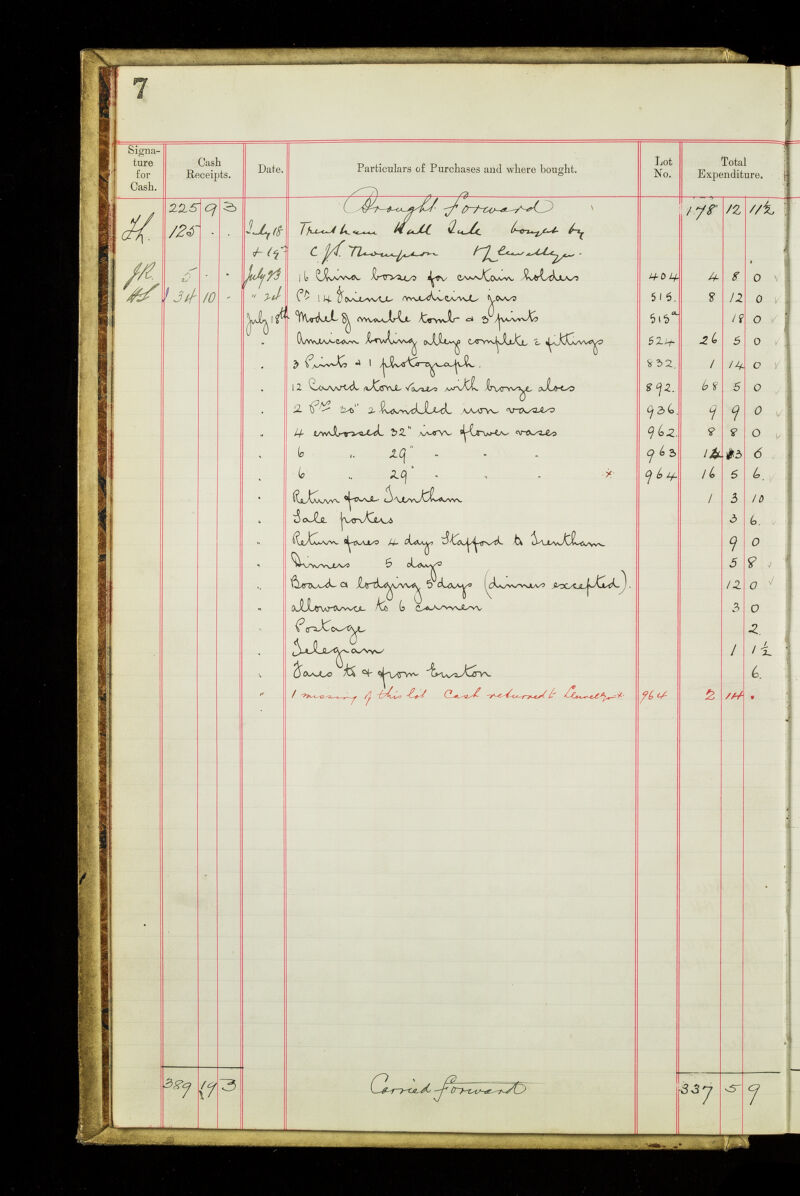 7
Signa-
ture
for
Cash.
Cash
Receipts.
Date.
Particulars of Purchases and where bought.
Lot
No.
Total
Expenditure.
225 9 3 Brought forward 178 12 11½
125 . . July 18 Trentham Hall Sale bought by
& 19 C. H. Thompson H Llewellyn.
5 . . July 93 16 China bosses for curtain holders 404 4 8 0
134 10 - " Pr 14 Faience medicine jars 515. 8 12 0
July 18th Model of marble tomb & 3 prints 515a 18 0
. American bowling alley complete & fittings 524 26 5 0
. 3 Prints & 1 photograph. 832. 1 14 0
. 12 Carved stone vases with bronze aloes 892. 68 5 0
. 2 Prs 20" 2 handled iron vases 936. 9 9 0
. 4 embossed 32" iron flower vases 962. 8 8 0
. 6 " 29" - - - 963 13 6
. 6 " 29" - - - × 964 16 5 6.
. Return fare Trentham 1 3 10
. Sale porters 3 6.
" Return fares 4 days Stafford to Trentham 9 0
. Dinners 5 days 5 8
., Board & lodging 5 days (dinners excepted). 12 0
" allowance to 6 carmen 3 0
. Postage 2.
. Telegram 1 1½
. Fares to & from Euston 6.
" 1 missing of this lot Cash returned to Llewellyn × 964 2 14 .
389 19 3 Carried forward 337 5 9